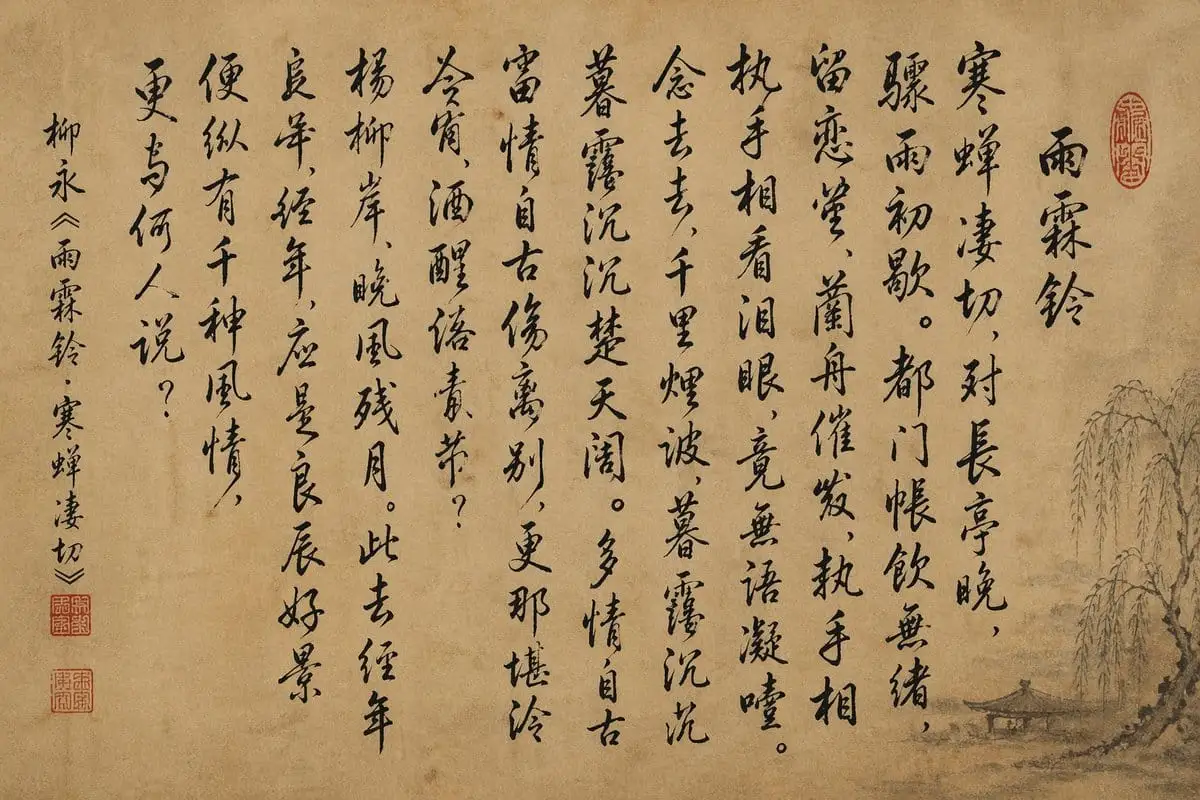 雨霖铃
寒蝉凄切,对長亭晚,
驟雨初歇。都门帳飲無绪,
留恋、蘭舟催发,執手相
执手相看泪眼,竟無語凝噎。
念去去,千里煙波,暮靄沉沉
暮靄沉沉楚天阔。多情自古
情自古傷离别,更那堪冷
今宵、酒醒?
杨柳岸、晚風残月。此去经年
年,经年,应是良辰好景
便纵有千种風情,
更与何人说?
柳永《雨霖铃·寒蝉凄切》